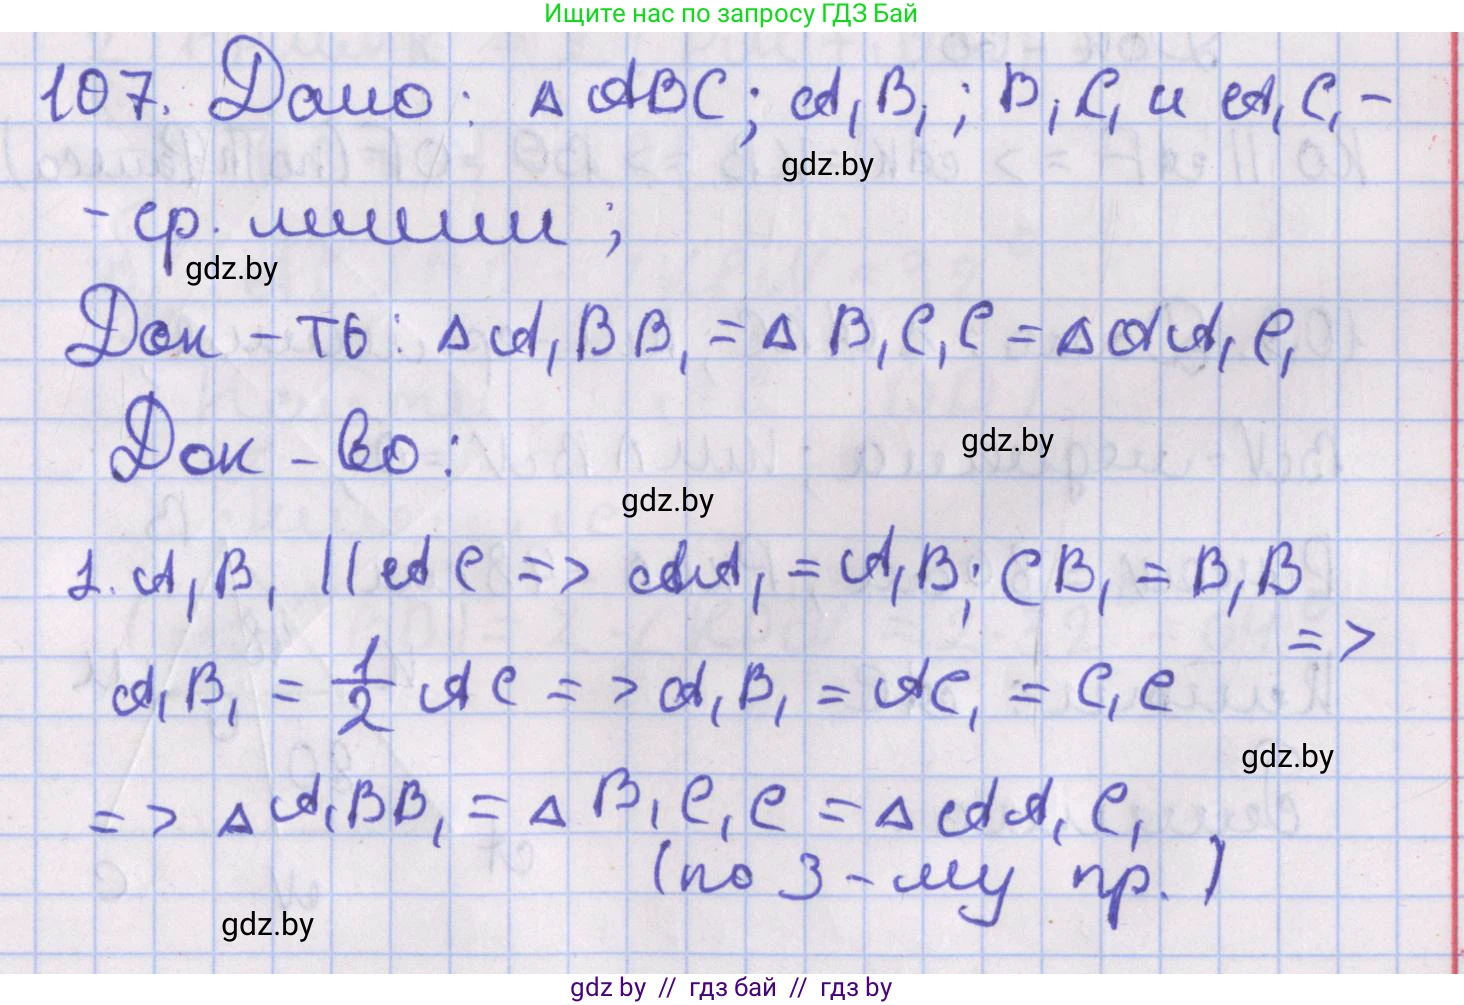 Ищите нас по запросу ГДЗ Бай
107. Дано: △ ABC; A₁B₁; B₁C₁ и A₁C₁ –
gdz.by
– ср. линии;
gdz.by
Док – ть: △ A₁BB₁ = △ B₁C₁C = △ AA₁C₁
Док – во:
gdz.by
gdz.by
1. A₁B₁ || AC => AA₁ = A₁B; CB₁ = B₁B
=>
A₁B₁ = 1/2 AC => A₁B₁ = AC₁ = C₁C
gdz.by
=> △ A₁BB₁ = △ B₁C₁C = △ AA₁C₁
(по 3 – му пр.)
gdz.by
gdz by // гдз бай // гдз by